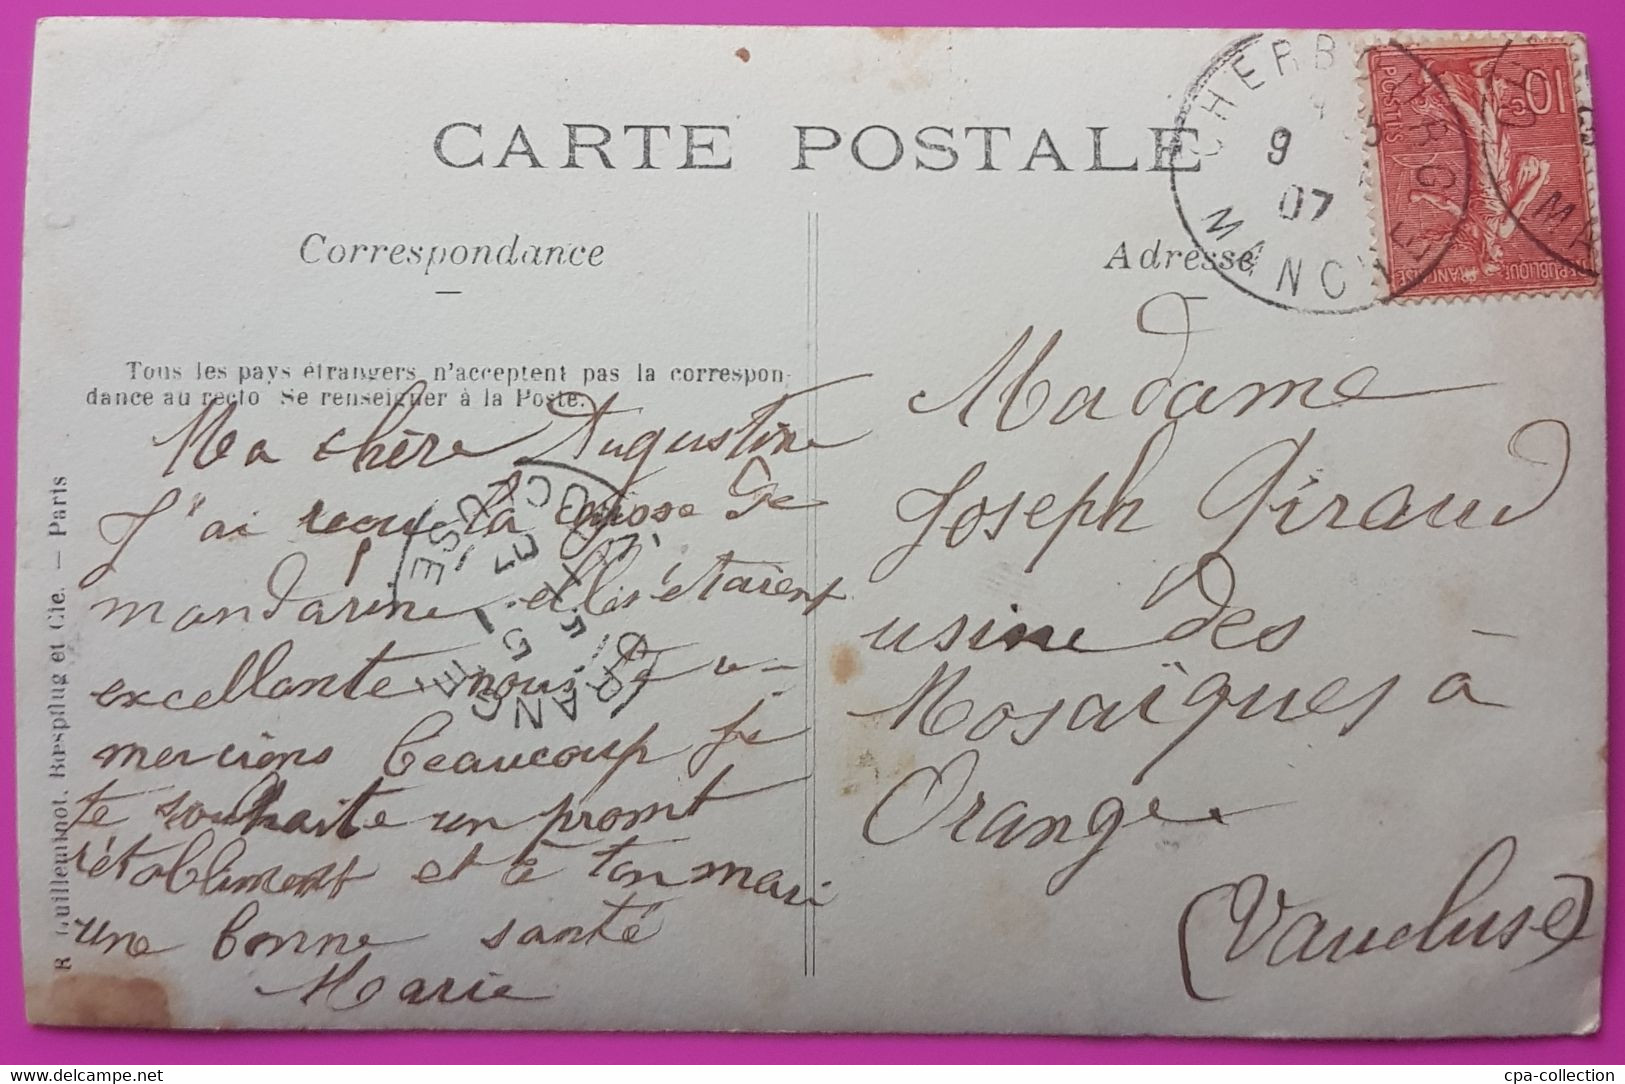 CARTE POSTALE
Correspondance
Adresse
Tous les pays étrangers n'acceptent pas la correspon-
dance au recto Se renseigner à la Poste.
Ma chère Augustine
J'ai reçu la caisse de
mandarine elles étaient
excellante nous te re-
mercions beaucoup je
te souhaite un promt
rétabliment et à ton mari
une bonne santé
Marie
Madame
Joseph Giraud
usine des
Mosaïques à
Orange
(Vaucluse)
R. Guilleminot, Bœspflug et Cie. — Paris
CHERBOURG
9
07
MANCHE
10
POSTES
REPUBLIQUE FRANÇAISE
ORANGE
VAUCLUSE
cpa-collection